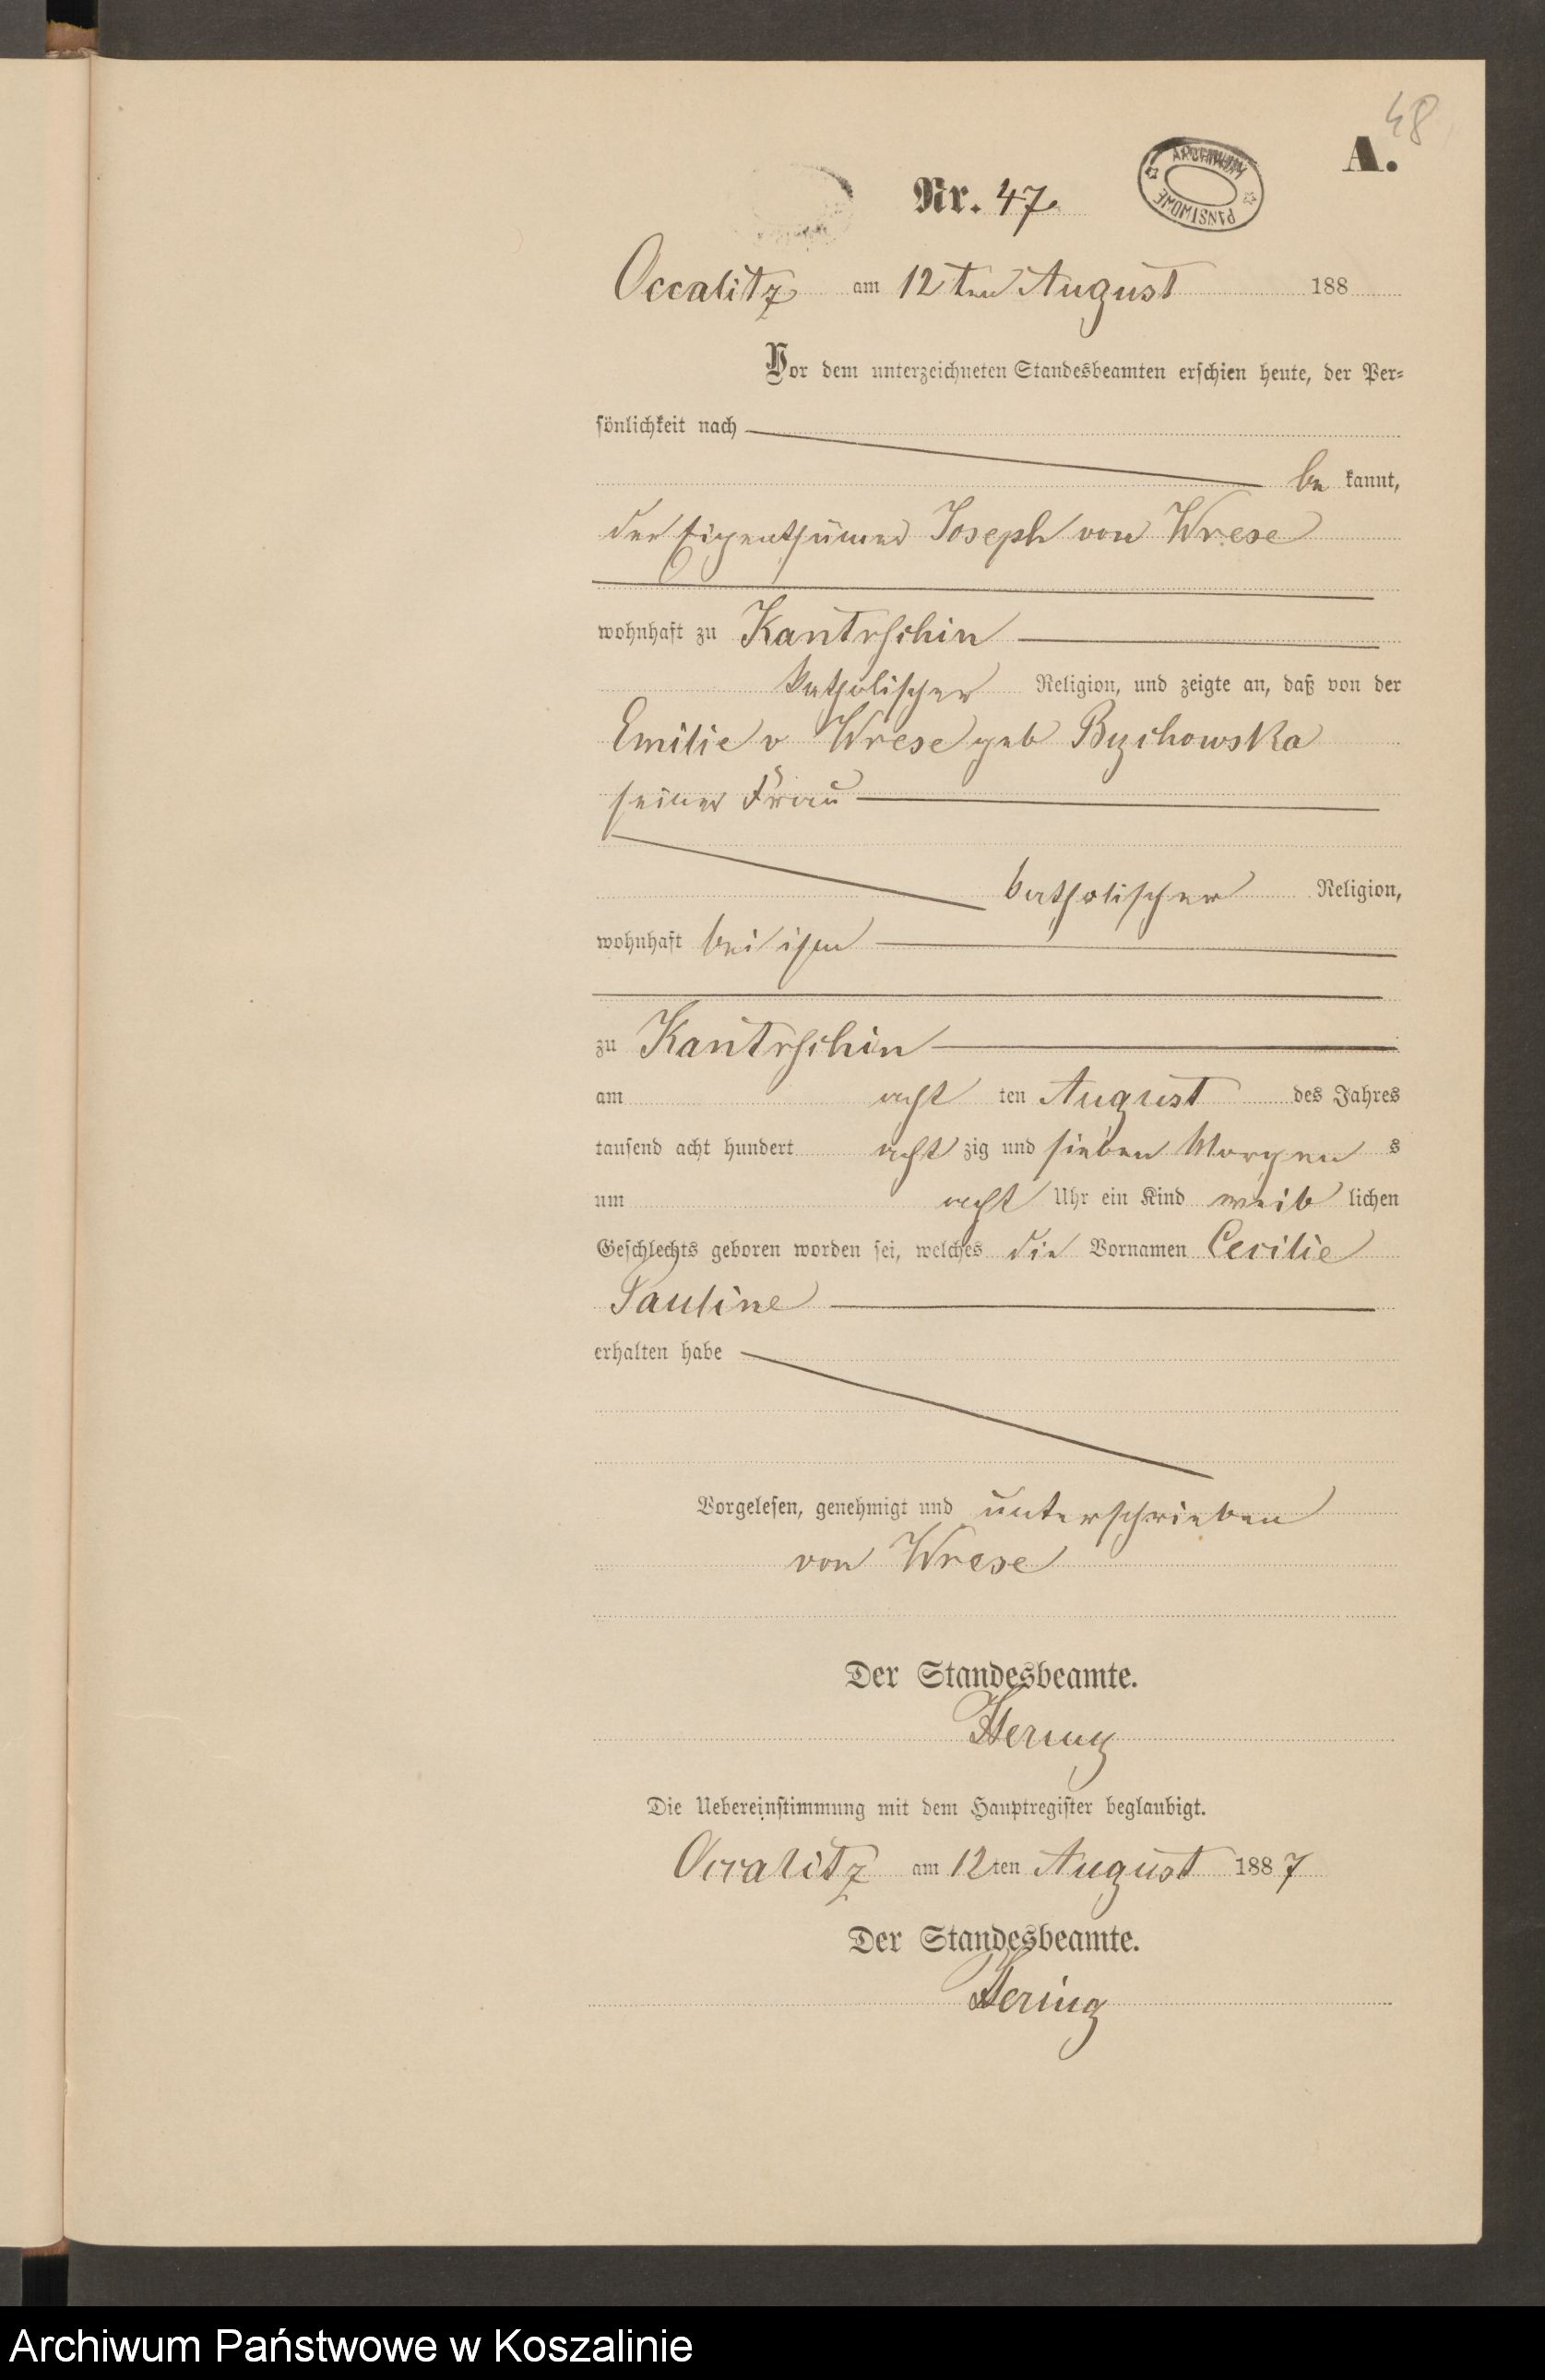 48
A.
ARCHIWUM PAŃSTWOWE
Nr. 47.
Occalitz am 12ten August 188
Vor dem unterzeichneten Standesbeamten erschien heute, der Per-
sönlichkeit nach
be kannt,
der Eigenthümer Joseph von Wrese
wohnhaft zu Kantrschin
katholischer Religion, und zeigte an, daß von der
Emilie v Wrese geb Bychowska
seiner Frau
katholischer Religion,
wohnhaft bei ihm
zu Kantrschin
am acht ten August des Jahres
tausend acht hundert acht zig und sieben Morgen s
um acht Uhr ein Kind weib lichen
Geschlechts geboren worden sei, welches die Vornamen Cecilie
Pauline
erhalten habe
Vorgelesen, genehmigt und unterschrieben
von Wrese
Der Standesbeamte.
Hering
Die Uebereinstimmung mit dem Hauptregister beglaubigt.
Occalitz am 12ten August 1887
Der Standesbeamte.
Hering
Archiwum Państwowe w Koszalinie